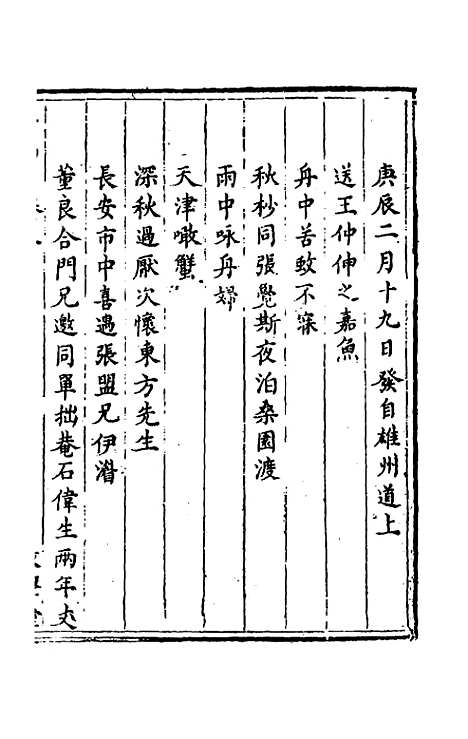 庚辰二月十九日發自雄州道上
送王仲伸之嘉魚
舟中苦蚊不寐
秋杪同張覺斯夜泊桑園渡
雨中咏舟婦
天津噉蟹
深秋過厭次懷東方先生
長安市中喜遇張盟兄伊潛
董良合門兄邀同單拙菴石偉生兩年丈